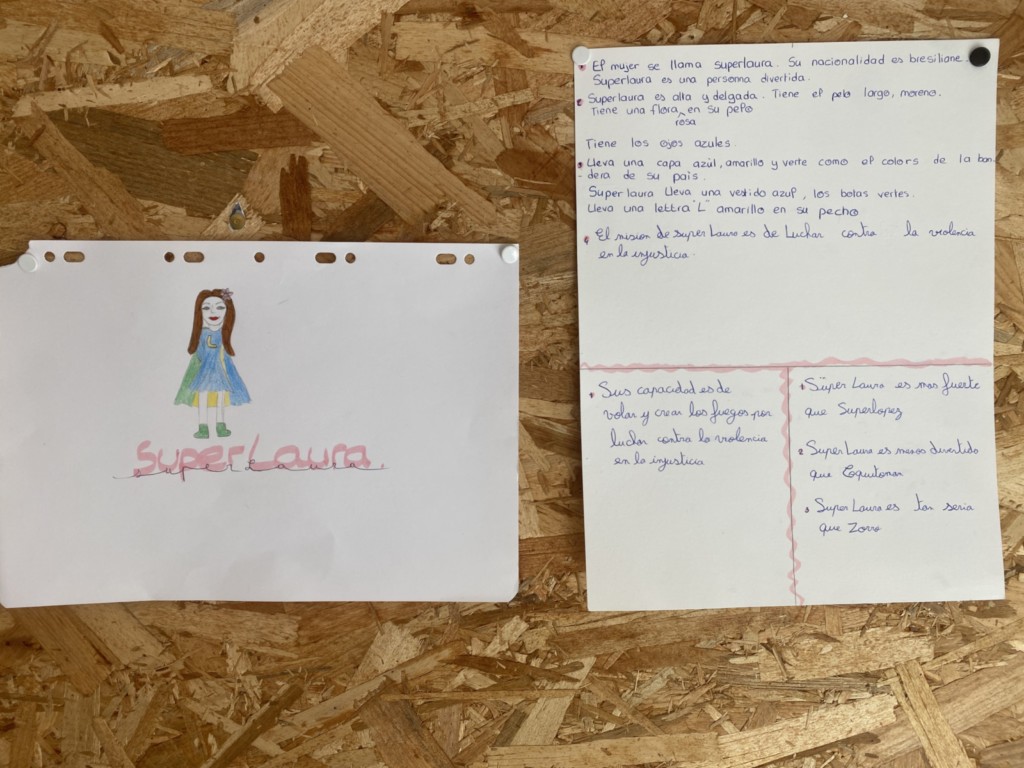 SuperLaura
SuperLaura.
El mujer se llama superlaura. Su nacionalidad es bresiliane.
Superlaura es una personna divertida.
Superlaura es alta y delgada. Tiene el pelo largo, moreno.
Tiene una flora rosa en su pelo
Tiene los ojos azules.
Lleva una capa azúl, amarillo y verte como el colors de la ban
- dera de su pais.
Super laura lleva una vestido azul, los botas vertes.
Lleva una lettra "L" amarillo en su pecho
El mision de super Laura es de Luchar contra la violencia
en la injusticia.
Sus capacidad es de
volar y crear los fuegos por
luchar contra la violencia
en la injusticia
Super Laura es mas fuerte
que Superlopez
Super Laura es menos divertido
que
Super Laura es tan seria
que Zorro
L